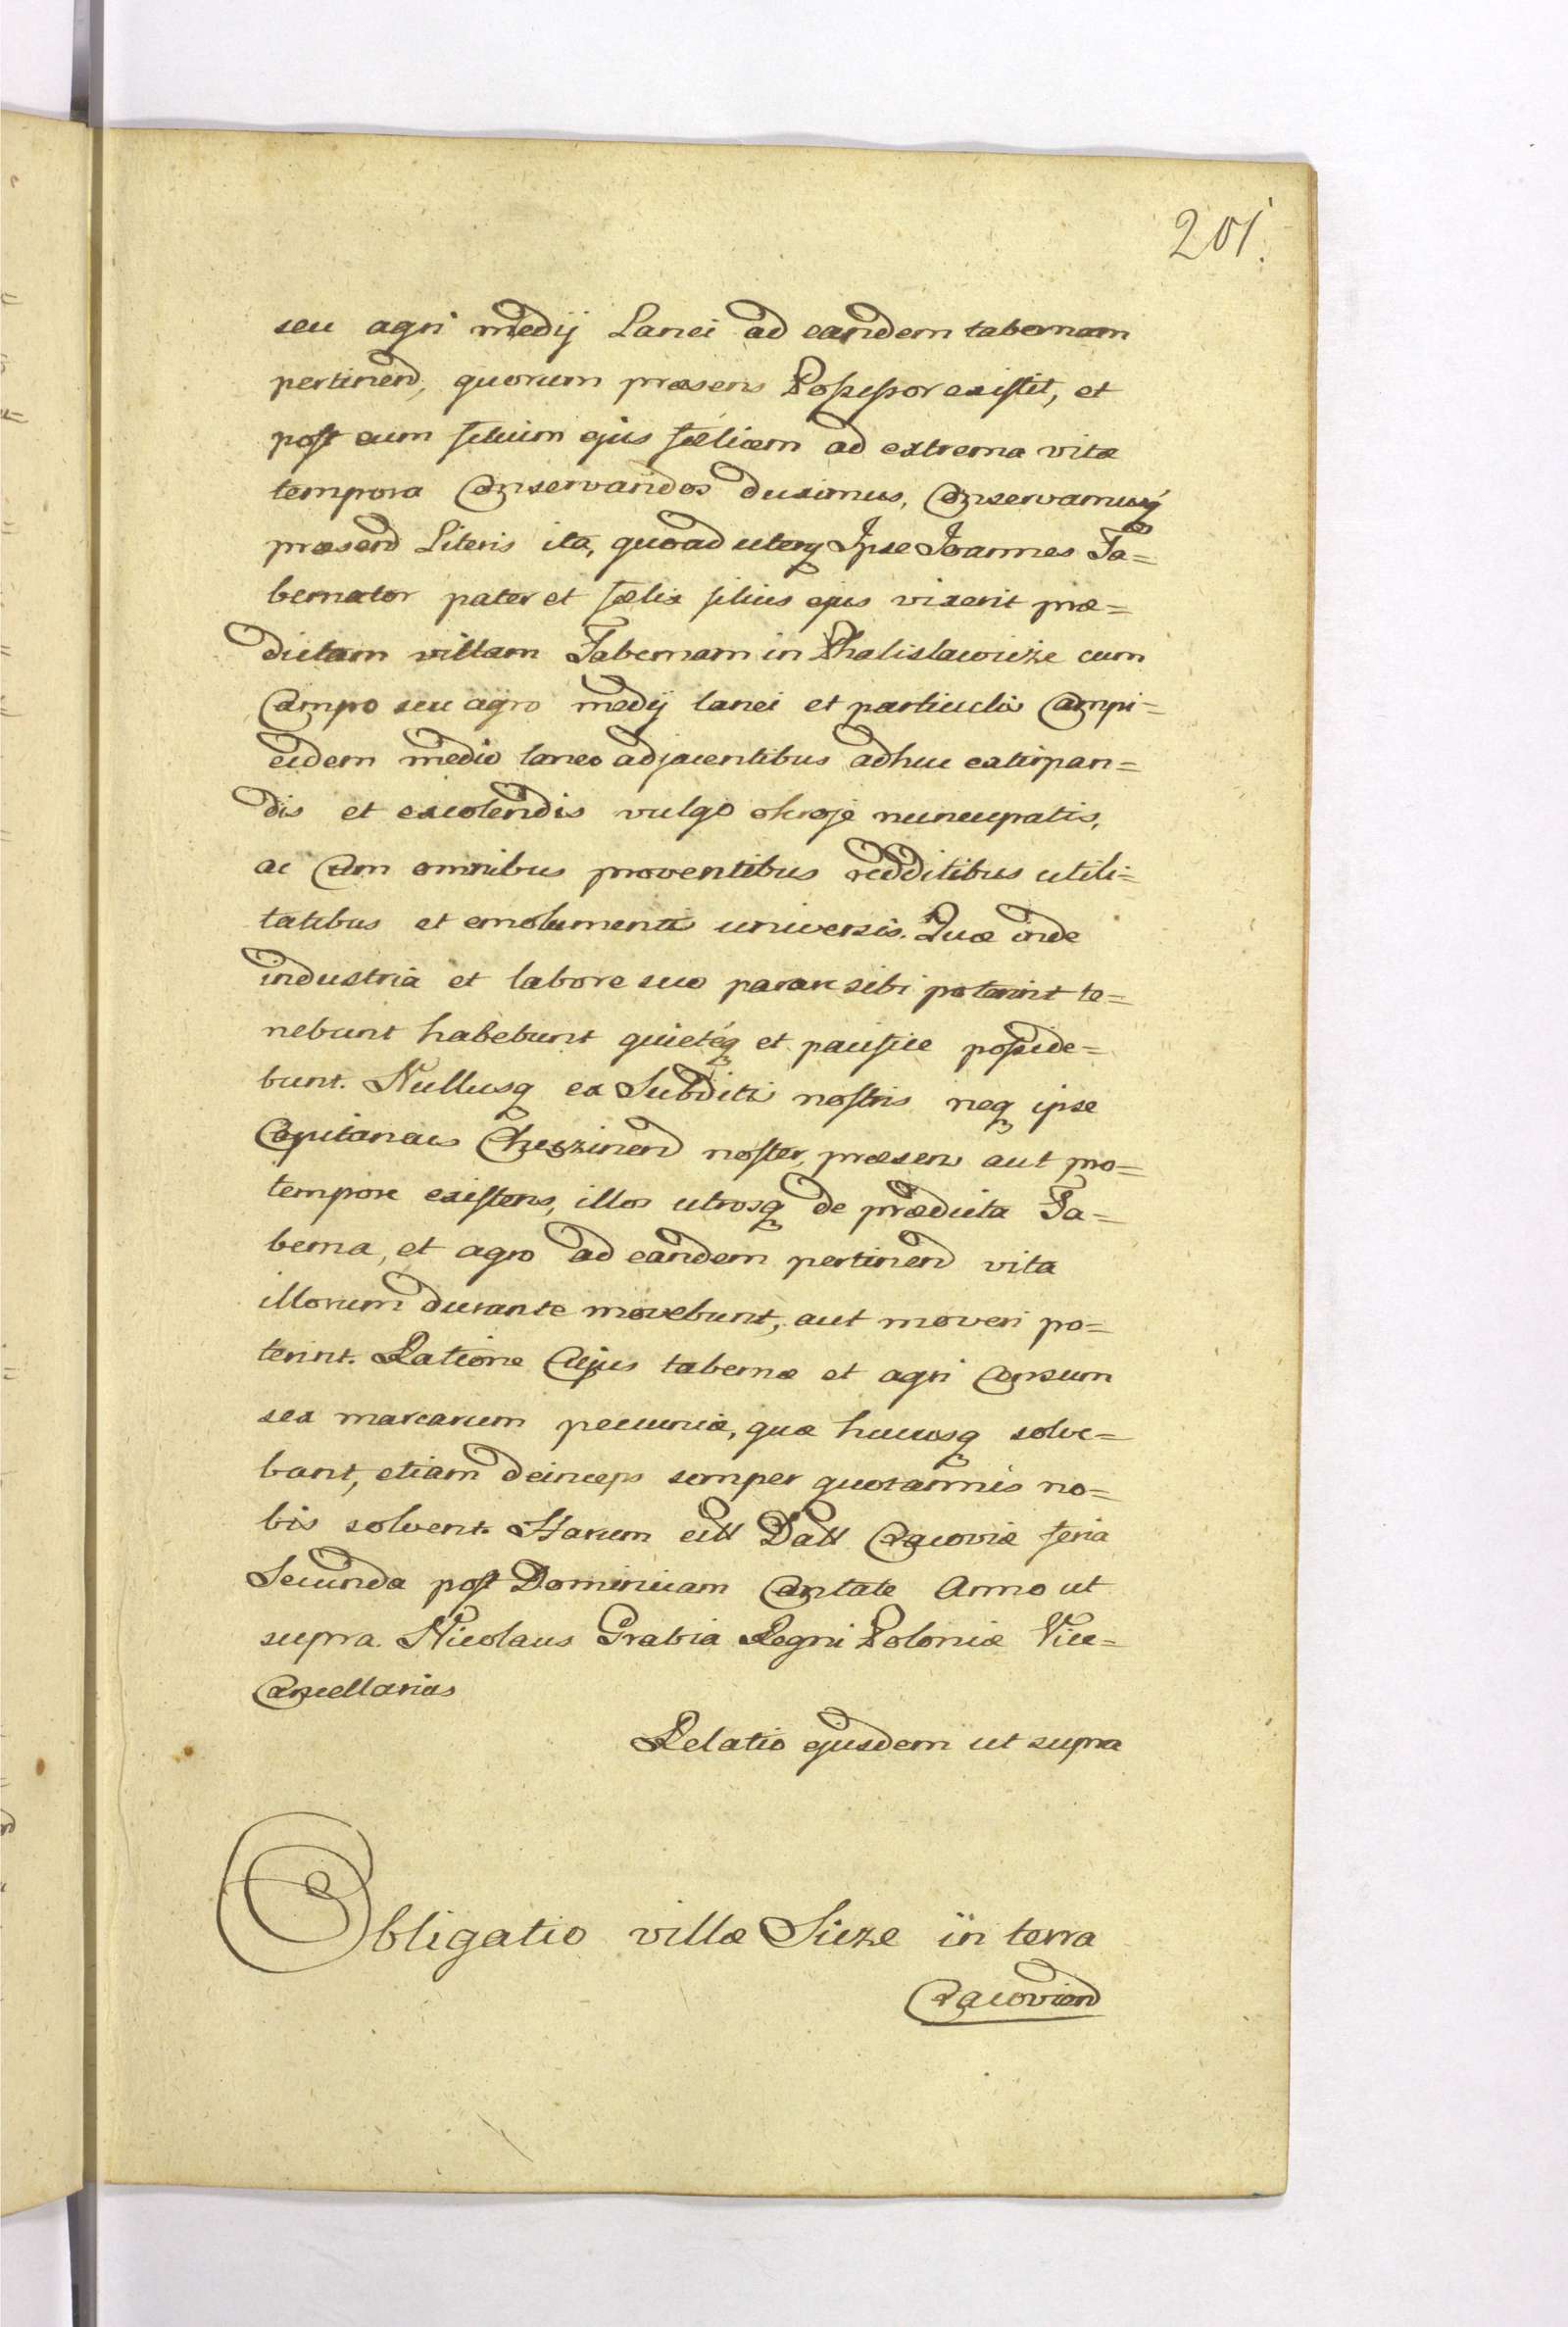 201.
seu agri medij Lanei ad eandem tabernam
pertinend, quorum præsens Possessor existit, et
post eum filium ejus fælicem ad extrema vitæ
tempora Conservandos duximus, Conservamusq́
præsend Literis ita, quoad uterq Ipse Joannes Ta=
bernator pater et fælix filius ejus vixerit præ=
dictam villam Tabernam in Phalislawicze cum
Campo seu agro medij lanei et particulis Campi=
eidem medio laneo adjacentibus adhuc extirpan=
dis et excolendis vulgo okroje nuncupatis,
ac Cum omnibus proventibus redditibus utili=
tatibus et emolumentis universis. Quæ inde
industria et labore suo parare sibi poterint te=
nebunt habebunt quietéq et pacifice posside=
bunt. Nullusq ex Subditis nostris neq ipse
Capitaneus Chęszinend noster, præsens aut pro=
tempore existens, illos utrosq de prædicta Ta=
berna, et agro ad eandem pertinend vita
illorum durante movebunt, aut moveri po=
terint. Ratione Cujus tabernæ et agri Censum
sex marcarum pecuniæ, quæ hucusq solve=
bant, etiam deinceps semper quotannis no=
bis solvent. Harum ett Datt Cracoviæ feria
Secunda post Dominicam Cantate Anno ut
supra. Nicolaus Grabia Regni Poloniæ Vice=
Cancellarius
Relatio ejusdem ut supra
Obligatio villæ Sicze in terra
Cracoviend